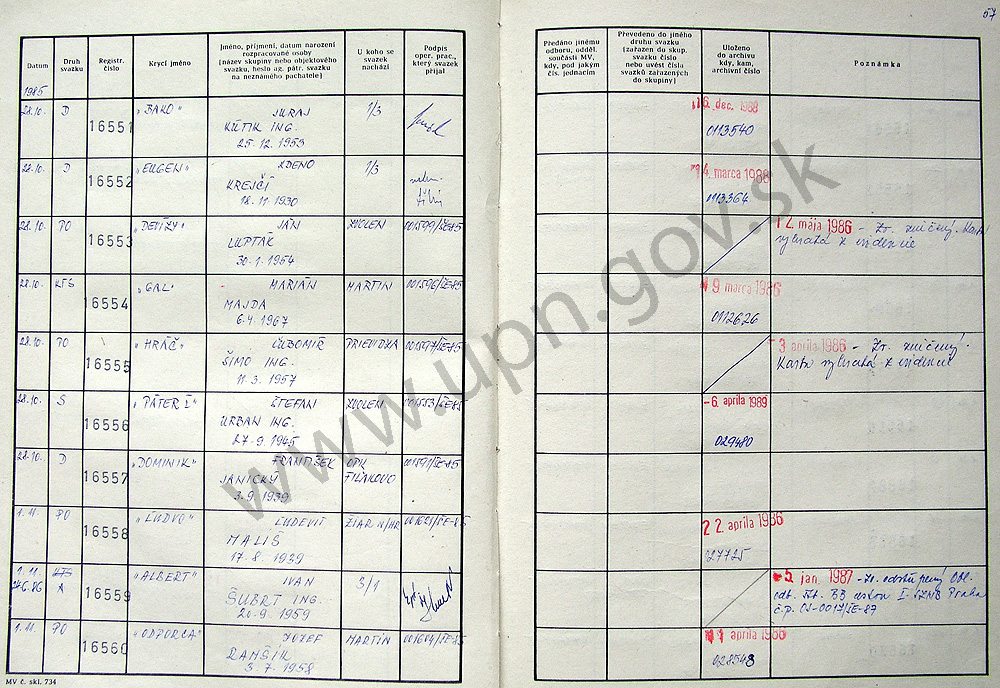 57
Datum
Druh svazku
Registr. číslo
Krycí jméno
Jméno, příjmení, datum narození
rozpracované osoby
[název skupiny nebo objektového
svazku, heslo ag. pátr. svazku
na neznámého pachatele]
U koho se
svazek
nachází
Podpis
oper. prac.,
který svazek
přijal
Předáno jinému
odboru, odděl.
součásti MV,
kdy, pod jakým
čís. jednacím
Převedeno do jiného
druhu svazku
[zařazen do skup.
svazku číslo
nebo uvést čísla
svazků zařazených
do skupiny]
Uloženo
do archivu
kdy, kam,
archivní číslo
Poznámka
1985
28.10. D 16551 "BAKO" JURAJ 1/3
KÚTIK ING.
25.12.1953
6. dec. 1988
0113540
28.10. D 16552 "EUGEN" ZDENO 1/3
KREJČÍ
18.11.1930
4. marca 1988
0113364
28.10. PO 16553 JÁN ZVOLEN 001599/ŠE-85
LUPTÁK
30.1.1954
12. mája 1986 - Zv. zničený. Karta
vybratá z evidencie
28.10. KTS 16554 "GAL" MARIÁN MARTIN 001596/ŠE-85
MAJDA
6.4.1967
9 marca 198
0112626
28.10. PO 16555 "HRÁČ" ĽUBOMÍR PRIEVIDZA 001597/ŠE-85
ŠIMO ING.
11.3.1957
3 apríla 1986 - Zv. zničený.
Karta vybratá z evidencie
28.10. S 16556 "PÁTER I" ŠTEFAN ZVOLEN 001553/ŠE-85
URBAN ING.
27.9.1945
-6. apríla 1989
029480
28.10. D 16557 "DOMINIK" FRANTIŠEK OPK 001591/ŠE-85
JANICKÝ FIĽAKOVO
3.9.1939
1.11. PO 16558 "ĽUDVO" ĽUDEVIT ŽIAR N/HR
MALIŠ
17.8.1939
22. apríla 1986
027725
1.11. KTS 16559 "ALBERT" IVAN 3/1
24.6.86 A
ŠUBRT ING.
20.9.1959
5. jan. 1987 - Zv. odstúpený
ŠtB BB Praha
č.p. OS-0017/ŠE-87
1.11. PO 16560 "ODPORCA" JOZEF MARTIN 001604/ŠE-85
RAMŠÍK
3.7.1958
1 apríla 1986
028548
MV č. skl. 734
www.upn.gov.sk